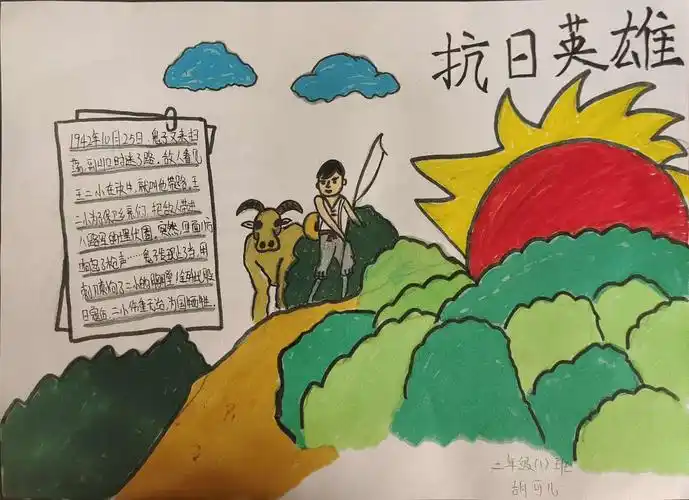 抗日英雄
1942年10月25日,鬼子又来扫
荡,到山口时迷了路,敌人看见
王二小在放牛,就叫他带路,王
二小为了保卫乡亲们,把敌人带进
八路军的埋伏圈,突然,四面八方
响起了枪声……鬼子发现上了当,用
刺刀刺向了二小的胸膛!
日寇后,二小伤重无治,为国牺牲.
二年级(1)班
胡可儿